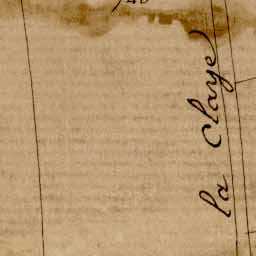 la Claye